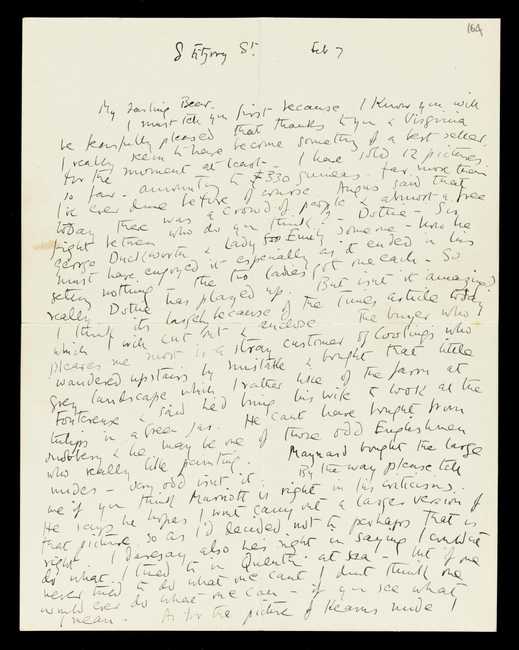 164
8 Fitzroy St. Feb 7
My Darling Bear.
I must tell you first because I know you will
be fearfully pleased that thanks to you & Virginia
I really seem to have become something of a best seller.
for the moment at least - I have sold 12 pictures.
so far - amounting to £330 guineas - far more than
I've ever done before. Of course Angus said that
today there was a crowd of people & almost a free
fight between who do you think? - Dottie - Sir
George Duckworth & Lady Emily someone - how he
must have enjoyed it especially as it ended in his
getting nothing & the two ladies got one each - So
really Dottie has played up. But isn't it amazing?
I think its largely because of the Times article today
which I will cut out & enclose. The buyer who
pleases me most is a stray customer of Cooling's who
wandered upstairs by mistake & bought that little
grey landscape which I rather like of the farm at
Fontcreuse & said he'd bring his wife to look at the
tulips in a green jar. He can't have bought from
snobbery & he may be one of those odd Englishmen
who really like painting. Maynard bought the large
nudes - very odd isn't it. By the way please tell
me if you think Marriott is right in his criticisms.
He says he hopes I won't carry out a larger version of
that picture so as I'd decided not to perhaps that is
right - I daresay also he's right in saying I couldn't
do what I tried to in Quentin at sea - but if one
never tried to do what one can't I don't think one
would ever do what one can - if you see what
I mean. As for the picture of nude I